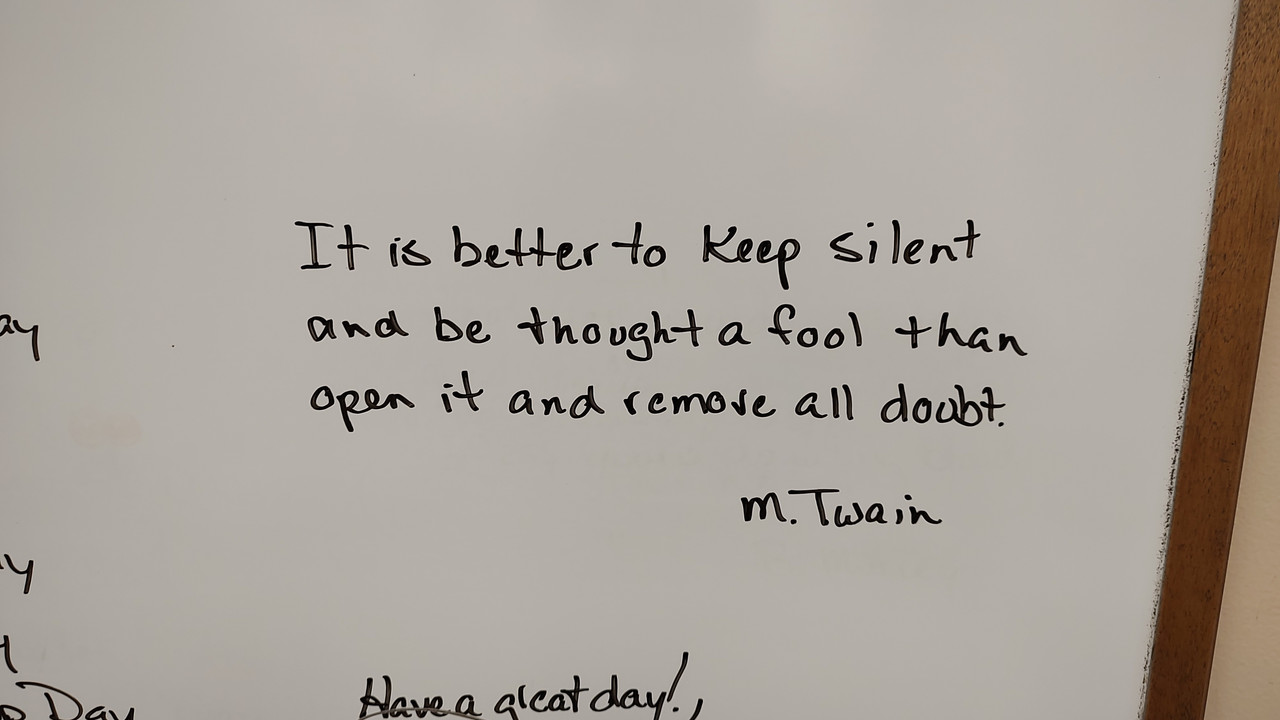 It is better to keep silent
and be thought a fool than
open it and remove all doubt.
M. Twain
Day
Have a great day!